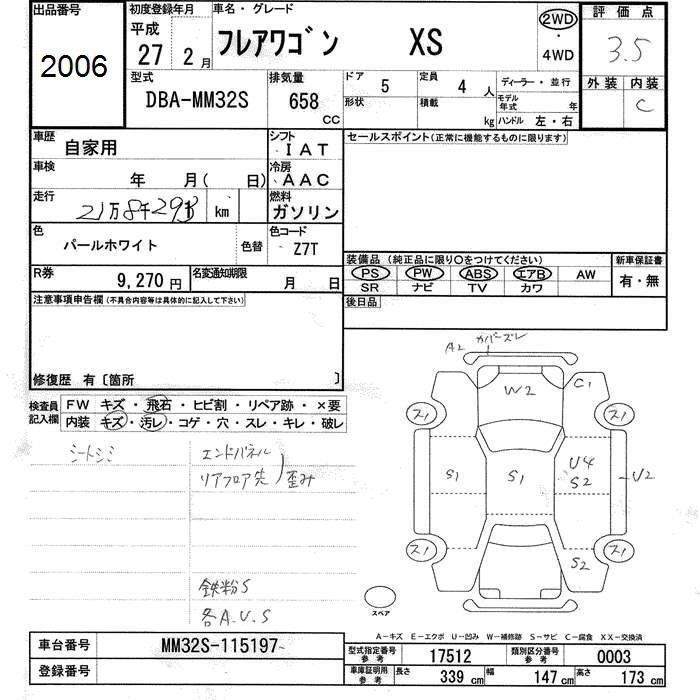 出品番号
2006
初度登録年月
平成
27 2 月
車名・グレード
フレアワゴン XS
2WD
・
4WD
評価点
3.5
外装 内装
C
型式
DBA-MM32S
排気量
658
CC
ドア 5
形状
定員 4 人
積載 kg
ディーラー・並行
モデル年式 年
ハンドル 左・右
車歴
自家用
シフト
IAT
車検
年 月( 日)
冷房
AAC
走行
km
燃料
ガソリン
色
パールホワイト
色替
色コード
Z7T
R券
9,270 円
名変通知期限
月 日
セールスポイント(正常に機能するものに限ります)
装備品(純正品に限り○をつけてください)
PS PW ABS エアB AW
SR ナビ TV カワ
新車保証書
有・無
後日品
注意事項申告欄(不具合内容等は具体的に記入して下さい)
修復歴 有〔箇所 〕
検査員記入欄
FW キズ・飛石・ヒビ割・リペア跡・×要
内装 キズ・汚レ・コゲ・穴・スレ・キレ・破レ
シートシミ
エンドパネル
リアフロア先
歪み
鉄粉S
各A.U.S
A2 カバーズレ
W2
C1
ス1
ス1
S1
S1
U4
S2
U2
ス1
ス1
S2
スペア
A－キズ E－エクボ U－凹み W－補修跡 S－サビ C－腐食 XX－交換済
車台番号
MM32S-115197
登録番号
型式指定番号
参考
17512
類別区分番号
参考
0003
車庫証明用
参考
長さ 339 cm
幅 147 cm
高さ 173 cm